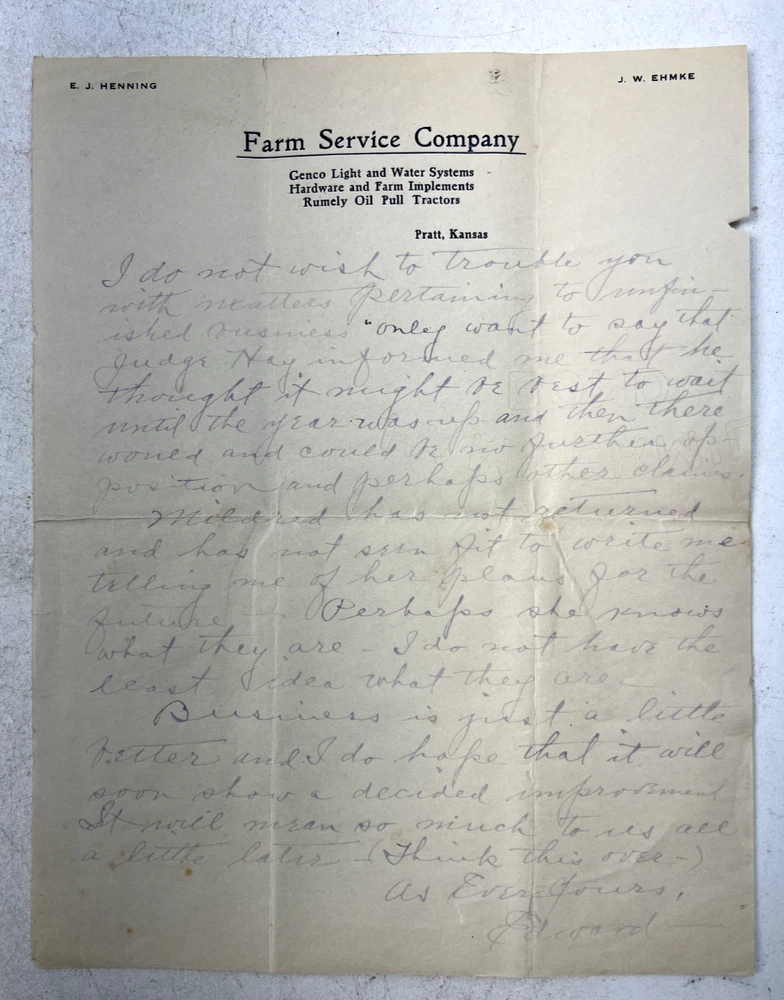 E. J. HENNING
J. W. EHMKE
Farm Service Company
Genco Light and Water Systems
Hardware and Farm Implements
Rumely Oil Pull Tractors
Pratt, Kansas
I do not wish to trouble you
with matters pertaining to unfin-
ished business "only want to say that
Judge Hay informed me that he
thought it might be best to wait
until the year was up and then there
would and could be no further op-
position and perhaps other claims.
Mildred has not returned
and has not seen fit to write me
telling me of her plans for the
future — Perhaps she knows
what they are - I do not have the
least idea what they are
Business is just a little
better and I do hope that it will
soon show a decided improvement
It will mean so much to us all
a little later - (Think this over -)
As Ever Yours,
Edward —